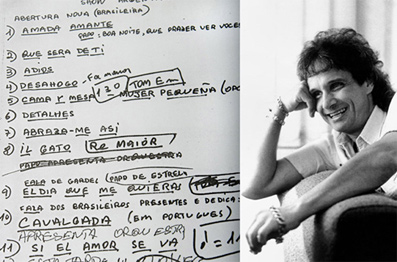 SHOW ARGEN
ABERTURA NOVA (BRASILEIRA)
1) AMADA AMANTE
PAPO: BOA NOITE, QUE PRAZER VER VOCES
2) QUE SERA DE TI
3) ADIOS
4) DESAHOGO
120 TOM Em
5) CAMA Y MESA MUJER PEQUEÑA
6) DETALHES
7) ABRAZA-ME ASI
8) IL GATO RE MAIOR
PAPO APRESENTA ORQUESTRA
FALA DE GARDEL (PAPO DE ESTRELA
9) EL DIA QUE ME QUIERAS
FALA DOS BRASILEIROS PRESENTES E DEDICA
10) CAVALGADA (EM PORTUGUES)
APRESENTA ORQUESTRA
11) SI EL AMOR SE VA